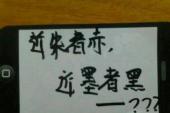 近朱者赤，
近墨者黑
——???